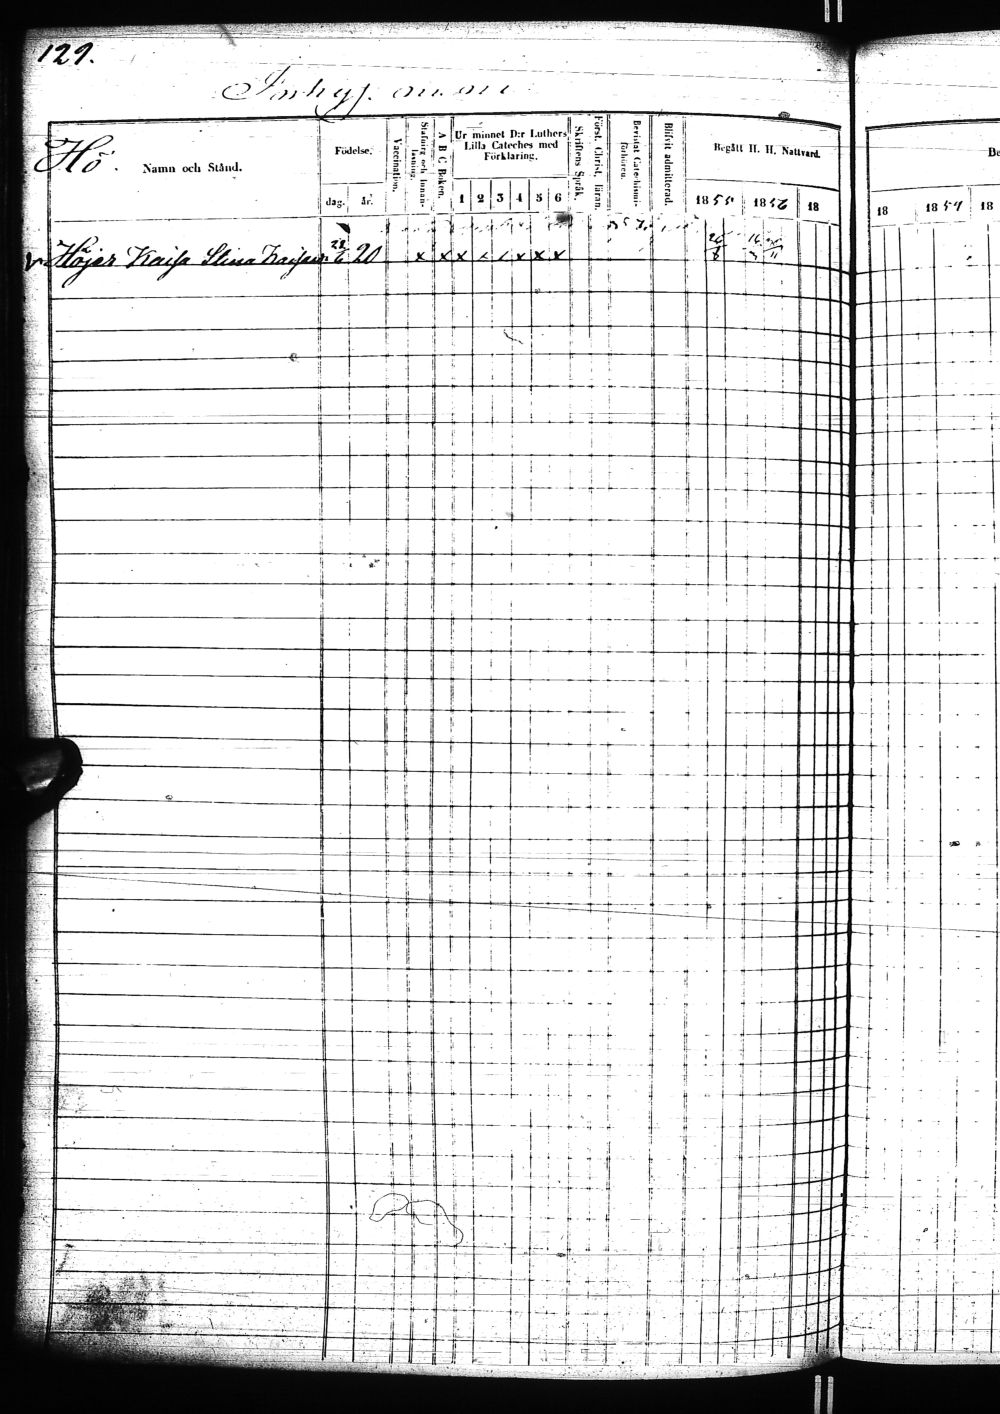 129.
Inhys.
Hö.
Namn och Stånd.
Födelse.
dag. år.
Vaccination.
Stafning och Innanläsning.
A B C Boken.
Ur minnet D:r Luthers Lilla Cateches med Förklaring.
1 2 3 4 5 6
Skriftens Språk.
Först. Christ. läran.
Bevistat Catechismi-förhören.
Blifvit admitterad.
Begått H. H. Nattvard.
18 1852 18
Höjer Kaisa Stina 28/6 20 x x x x x x x x
26/8 16
Be
18 1854 18